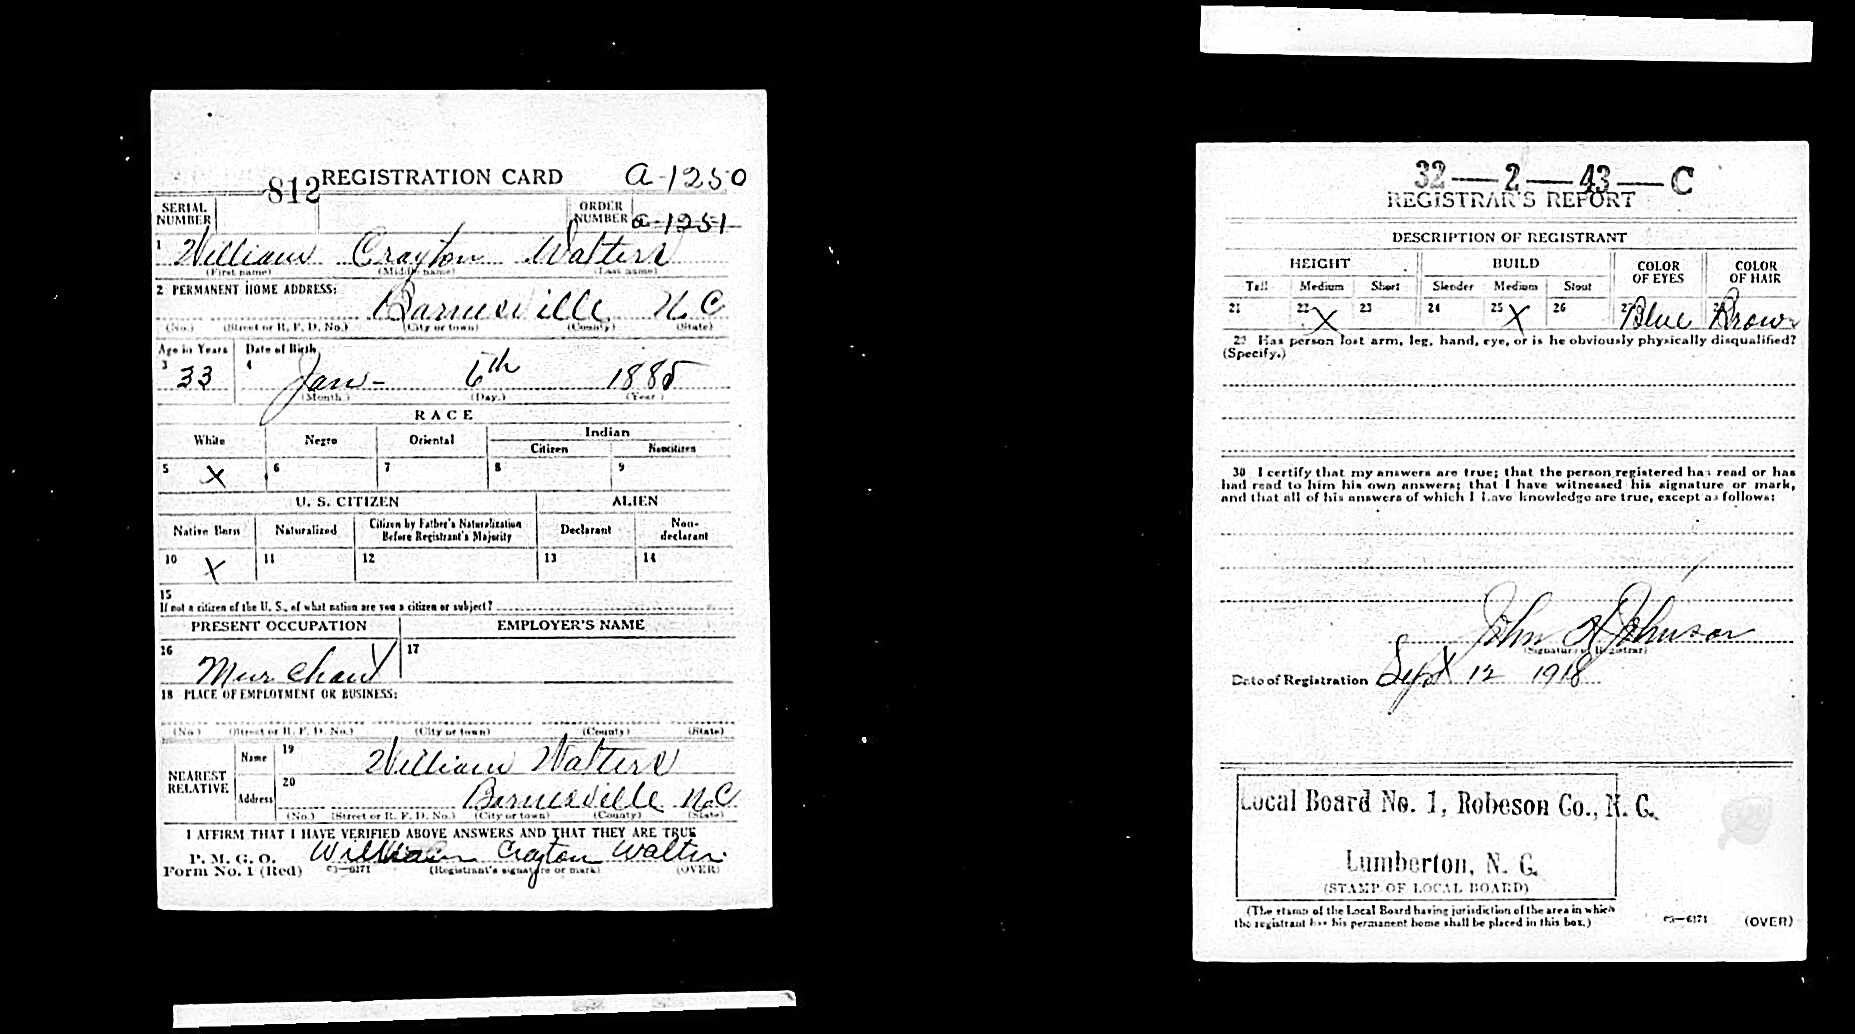 812 REGISTRATION CARD a-1250
SERIAL NUMBER
ORDER NUMBER a-1251
1 William Crayton Walters
(First name) (Middle name) (Last name)
2 PERMANENT HOME ADDRESS:
Barnesville N C
(No.) (Street or R. F. D. No.) (City or town) (County) (State)
Age in Years Date of Birth
3 33 4 Jan- 6th 1885
(Month.) (Day.) (Year.)
RACE
White Negro Oriental Indian
Citizen Noncitizen
5 X 6 7 8 9
U. S. CITIZEN ALIEN
Native Born Naturalized Citizen by Father's Naturalization Before Registrant's Majority Declarant Non-declarant
10 X 11 12 13 14
15
If not a citizen of the U. S., of what nation are you a citizen or subject?
PRESENT OCCUPATION EMPLOYER'S NAME
16 Murchant 17
18 PLACE OF EMPLOYMENT OR BUSINESS:
(No.) (Street or R. F. D. No.) (City or town) (County) (State)
NEAREST RELATIVE
Name 19 William Walters
Address 20 Barnesville N.C.
(No.) (Street or R. F. D. No.) (City or town) (County) (State)
I AFFIRM THAT I HAVE VERIFIED ABOVE ANSWERS AND THAT THEY ARE TRUE
P. M. G. O.
Form No. 1 (Red) 03—6171 William Crayton Walters
(Registrant's signature or mark) (OVER)
32—2—43—C
REGISTRAR'S REPORT
DESCRIPTION OF REGISTRANT
HEIGHT BUILD COLOR OF EYES COLOR OF HAIR
Tall Medium Short Slender Medium Stout
21 22 X 23 24 25 X 26 27 Blue 28 Brown
29 Has person lost arm, leg, hand, eye, or is he obviously physically disqualified?
(Specify.)
30 I certify that my answers are true; that the person registered has read or has
had read to him his own answers; that I have witnessed his signature or mark,
and that all of his answers of which I have knowledge are true, except as follows:
John A Johnson
(Signature of Registrar)
Date of Registration Sept 12 1918
Local Board No. 1, Robeson Co., N. C.
Lumberton, N. C.
(STAMP OF LOCAL BOARD)
(The stamp of the Local Board having jurisdiction of the area in which
the registrant has his permanent home shall be placed in this box.)
03—6171 (OVER)